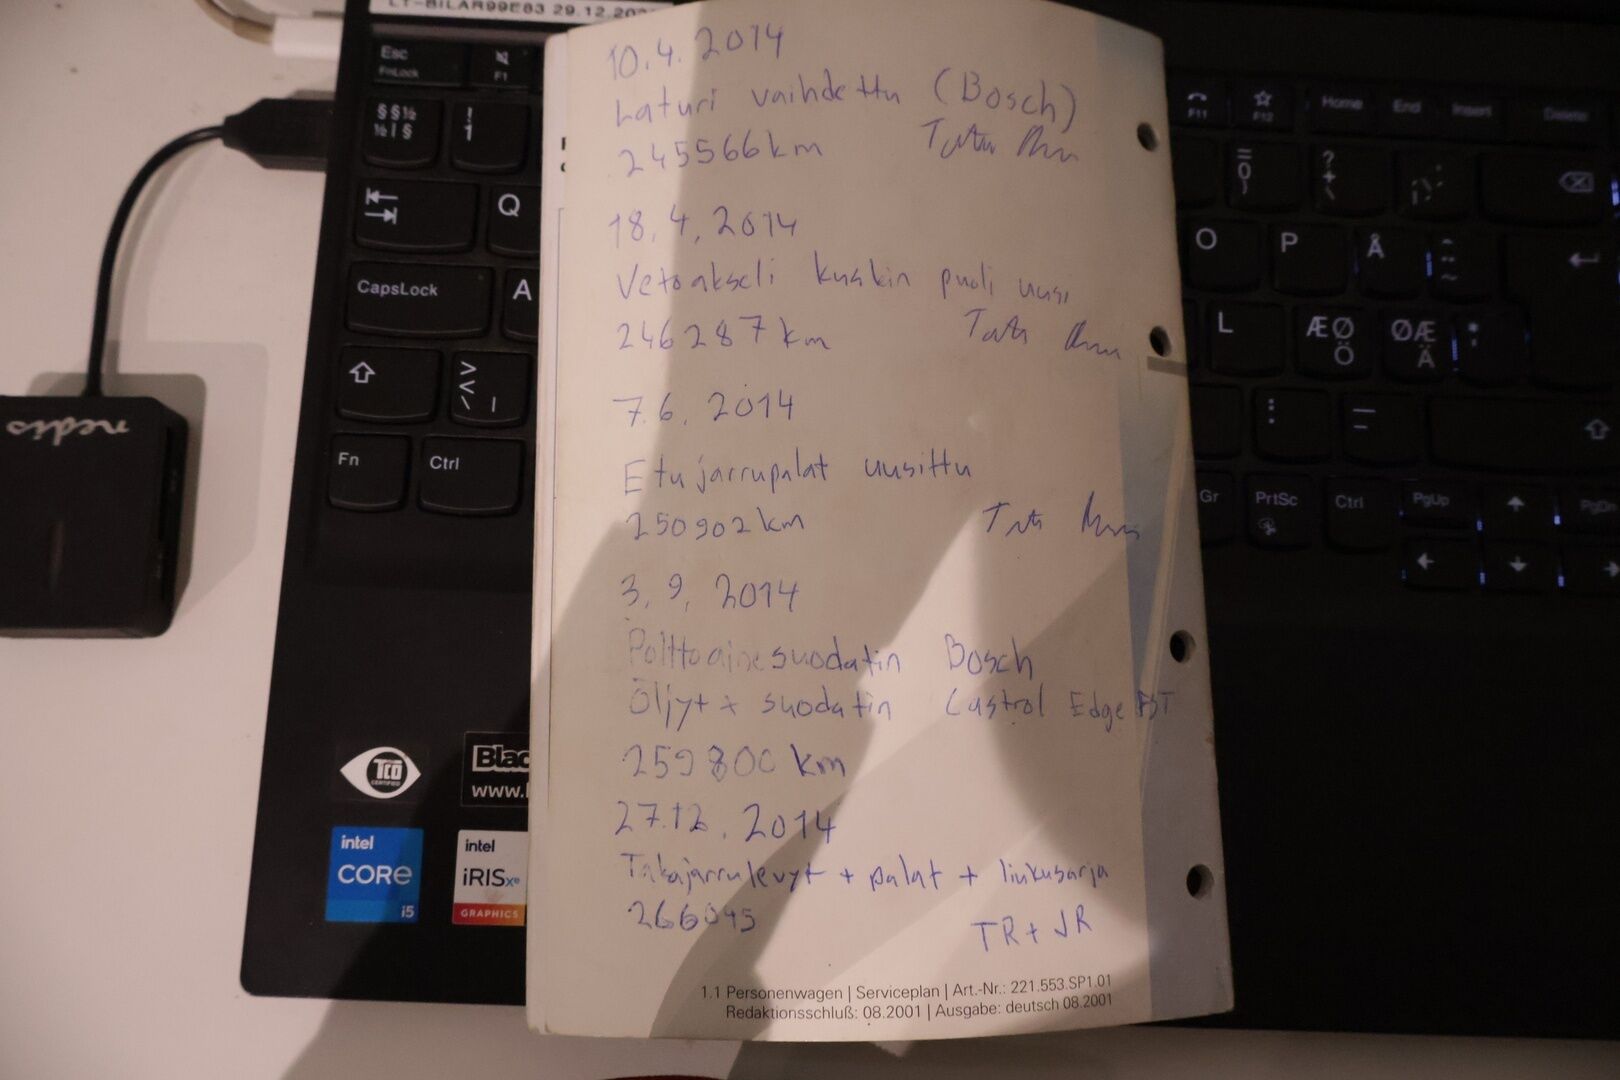 LT-BILAR99E83 29.12.202
10.4.2014
Laturi vaihdettu (Bosch)
245566km
18.4.2014
Vetoakseli kuskin puoli uusi
246287km
7.6.2014
Etujarrupalat uusittu
250902km
3.9.2014
Polttoainesuodatin Bosch
Öljyt + suodatin Castrol Edge FST
259800 km
27.12.2014
Takajarrulevyt + palat + liukusarja
266045
TR + JR
1.1 Personenwagen | Serviceplan | Art.-Nr.: 221.553.SP1.01
Redaktionsschluß: 08.2001 | Ausgabe: deutsch 08.2001
nedis
Esc
FnLock
F1
§ § ½
½ | §
!
1
Q
CapsLock
A
>
<
\ |
Fn
Ctrl
TCO
CERTIFIED
Blac
www.
intel
CORe
i5
intel
iRISxe
GRAPHICS
F11
F12
Home
End
Insert
Delete
=
0
}
?
+
\
O
P
Å
L
ÆØ
Ö
ØÆ
Ä
*
'
:
.
_
-
Gr
PrtSc
Ctrl
PgUp
PgDn